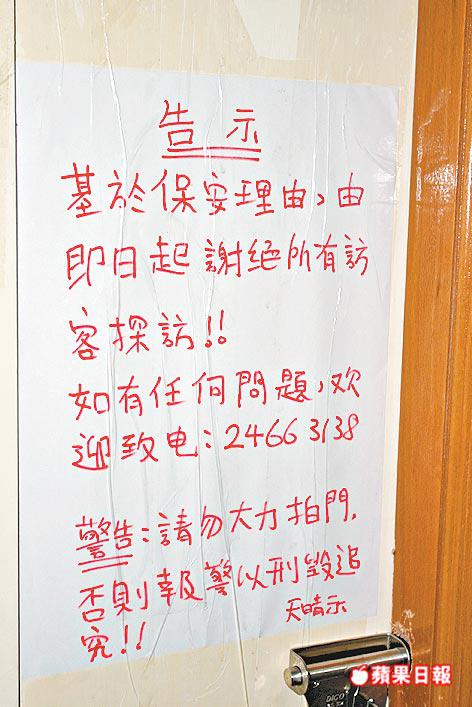 告示
基於保安理由，由
即日起謝絕所有訪
客探訪!!
如有任何問題，欢
迎致电：2466 3138
警告：請勿大力拍門，
否則報警以刑毀追
究!!
天晴示
DIGO
蘋果日報